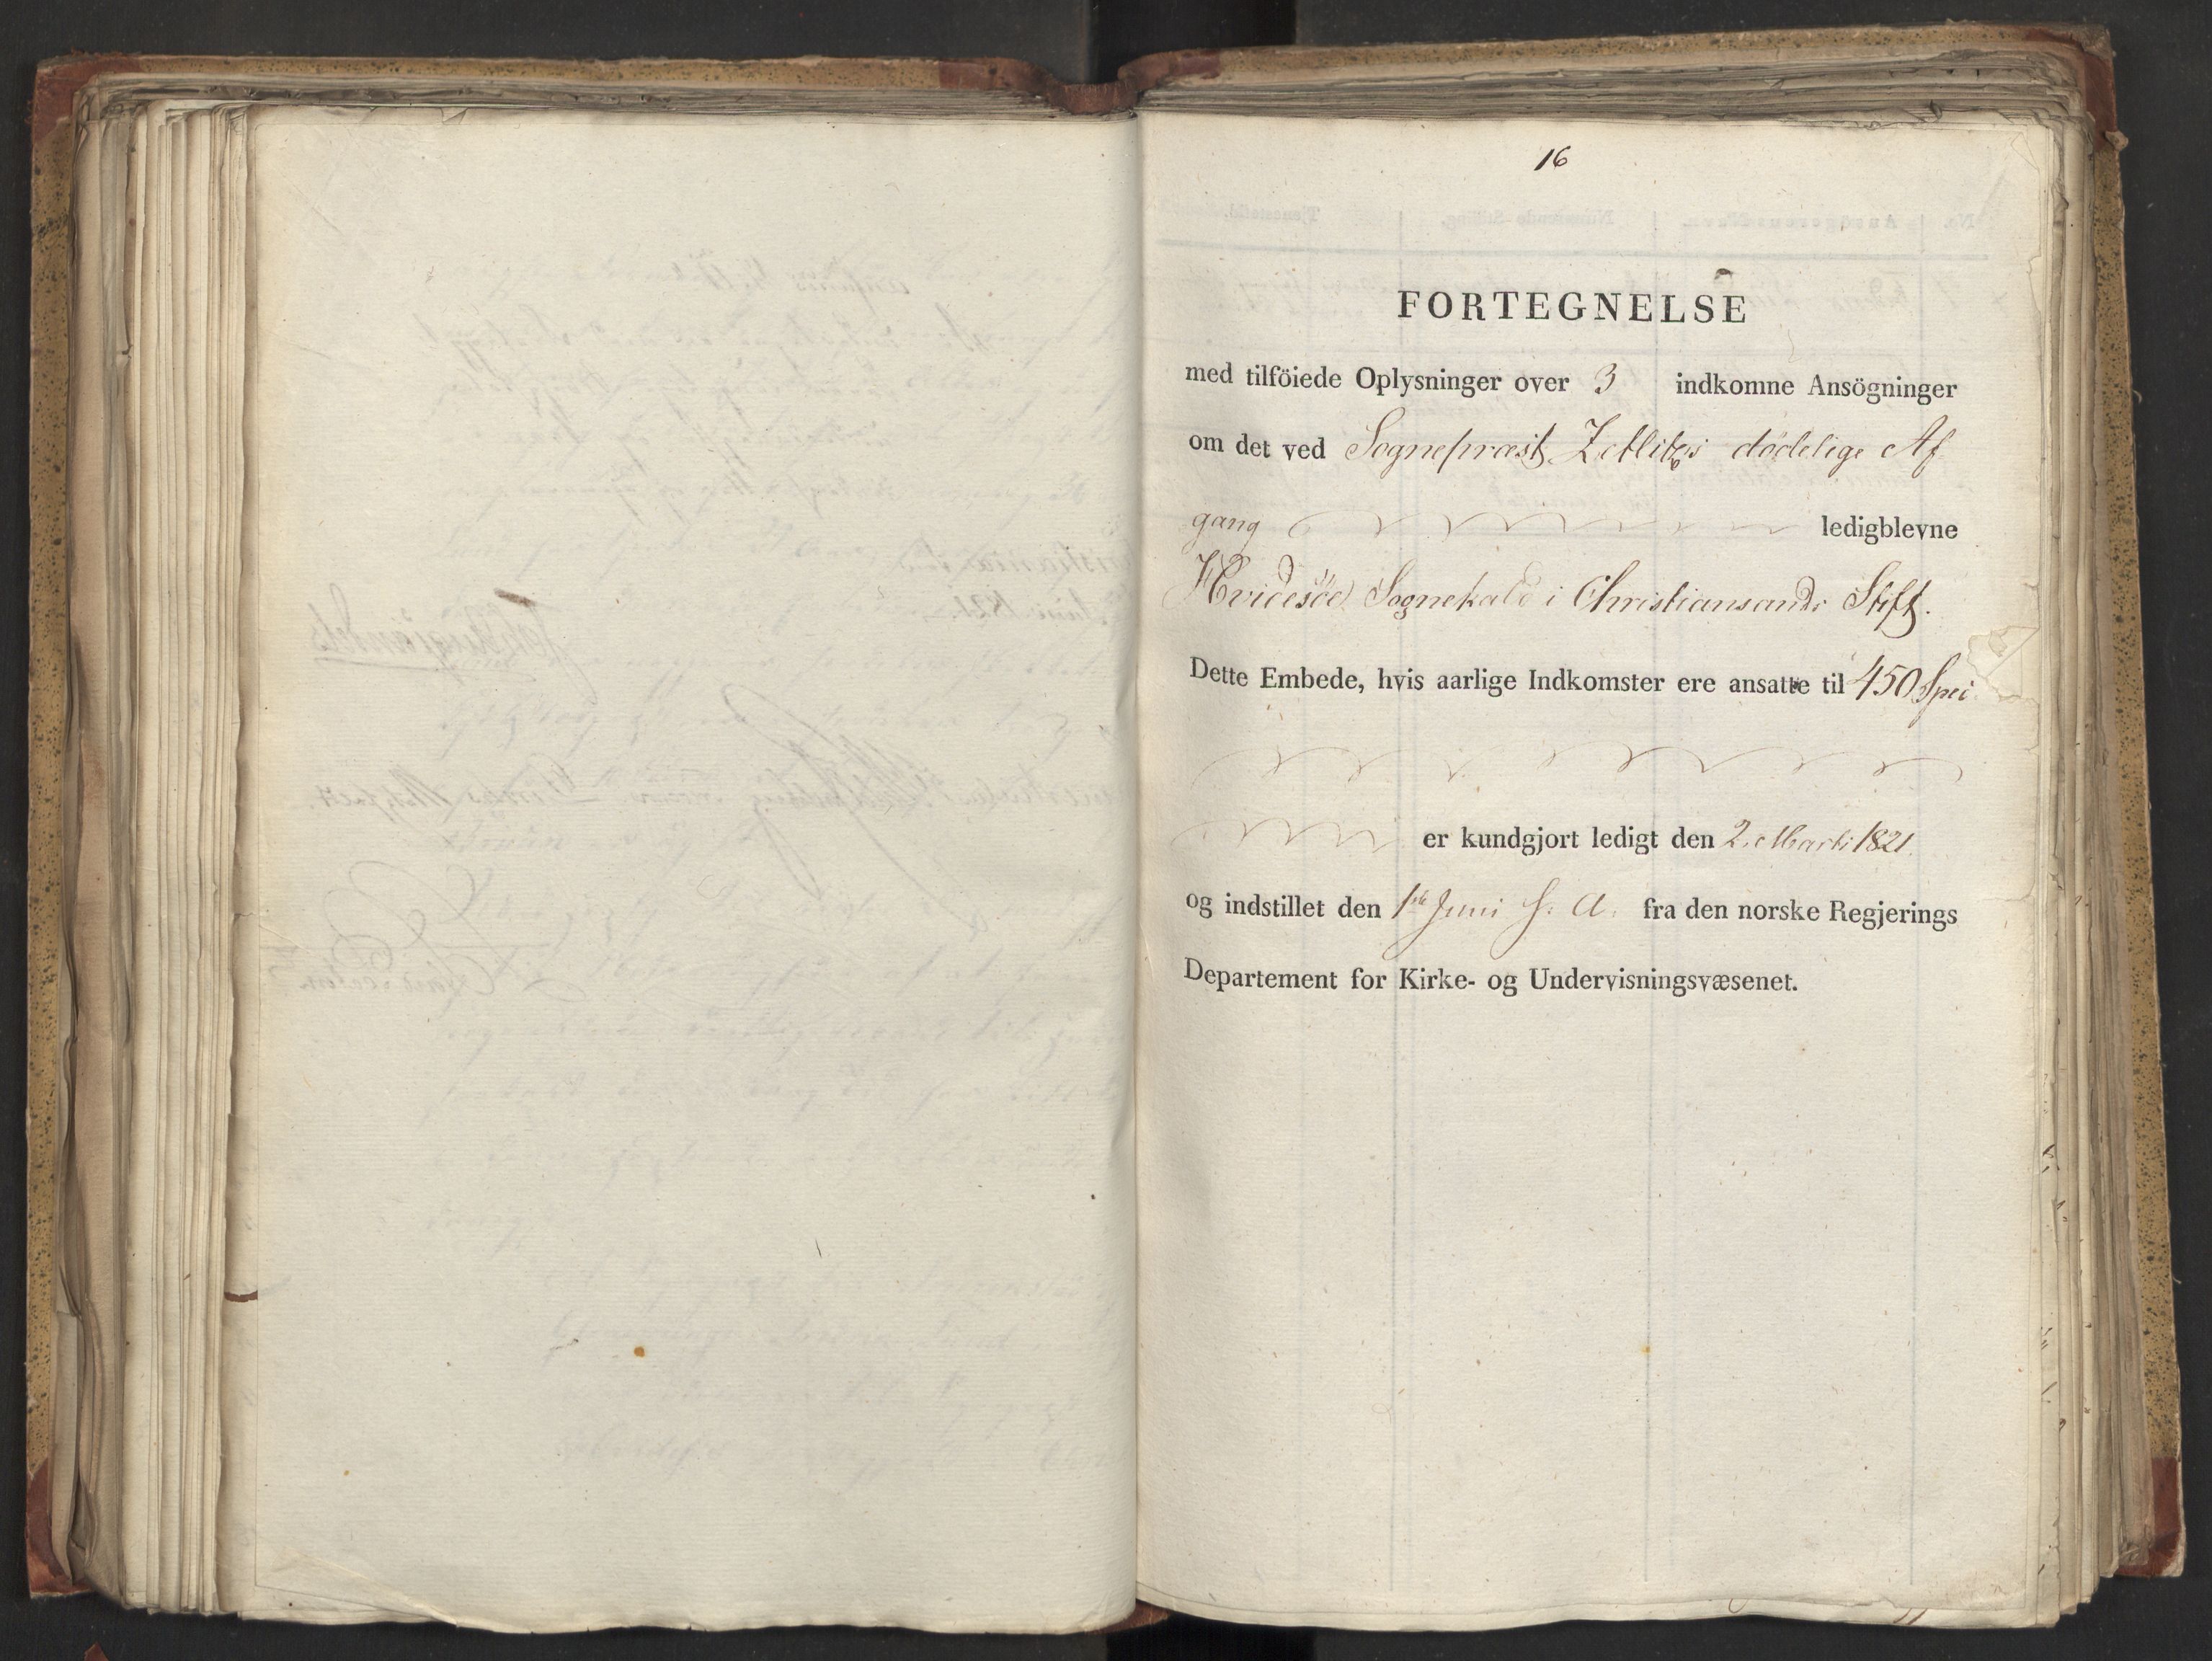 16
FORTEGNELSE
med tilföiede Oplysninger over 3 indkomne Ansögninger
om det ved Sognepræst Zetlitzs dødelige Af
gang ledigblevne
Hvidesöe Sognekald i Christiansands Stift.
Dette Embede, hvis aarlige Indkomster ere ansatte til 450 Spei
er kundgjort ledigt den 2. Marti 1821.
og indstillet den 1ste Juni s. A. fra den norske Regjerings
Departement for Kirke- og Undervisningsvæsenet.